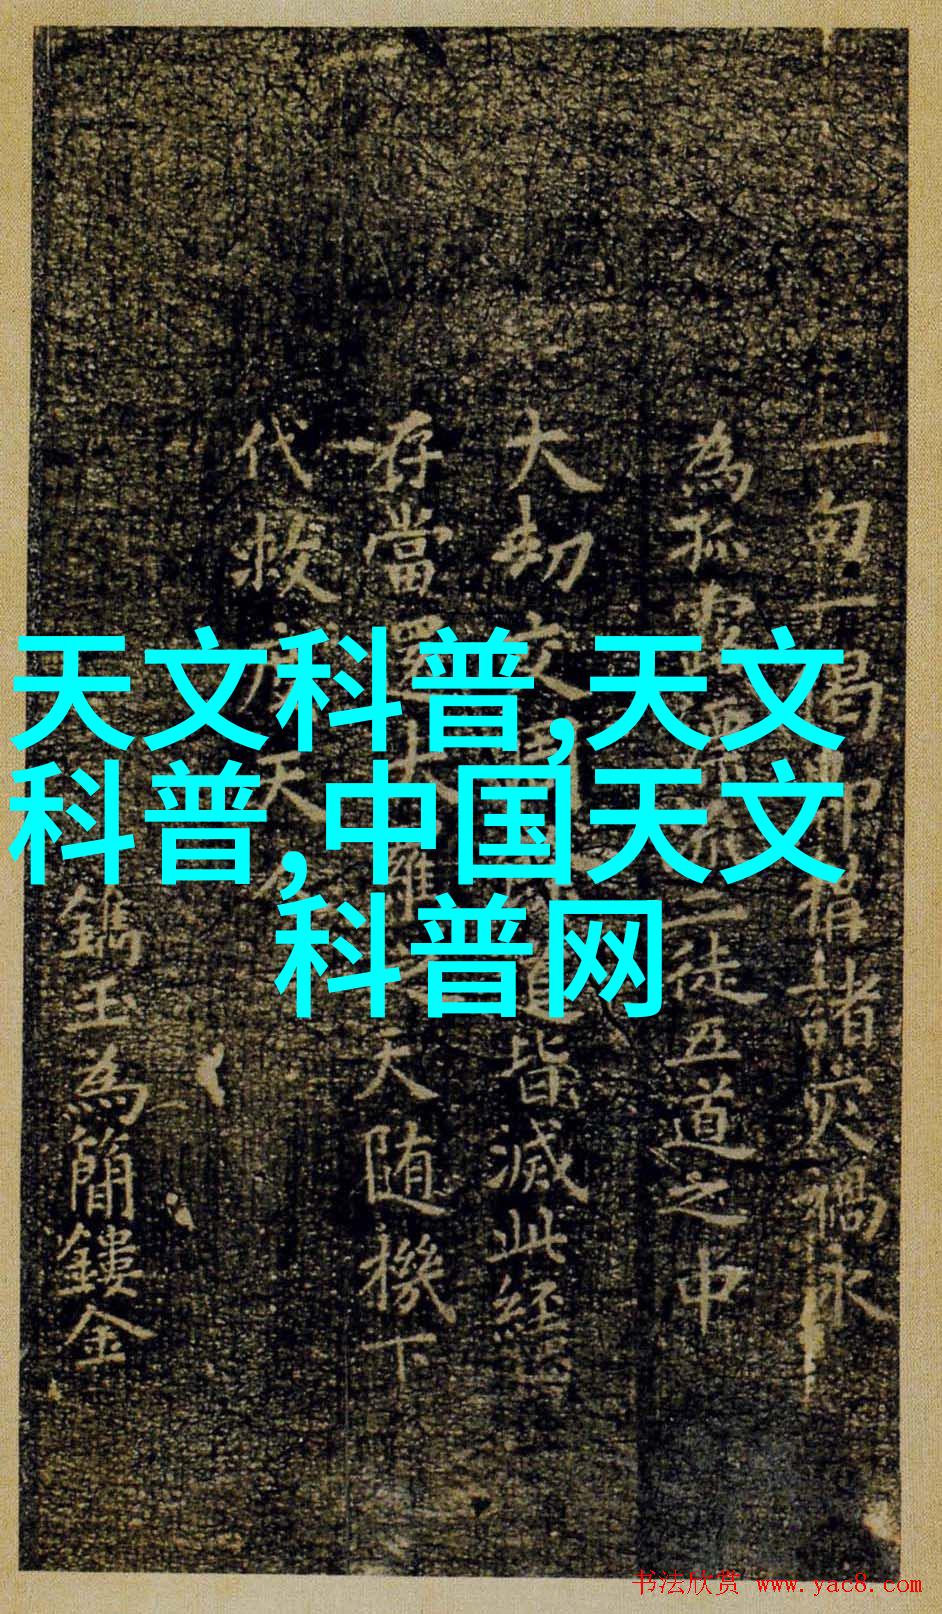 天文科普,天文
科普,中国天文
科普网
一句一偈即指諸灾禍永
為孤
二徒五道之中
大劫交
皆滅此經
存當
天随機下
代救
天
鐫玉為簡鏤金
书法欣赏 www.yac8.com